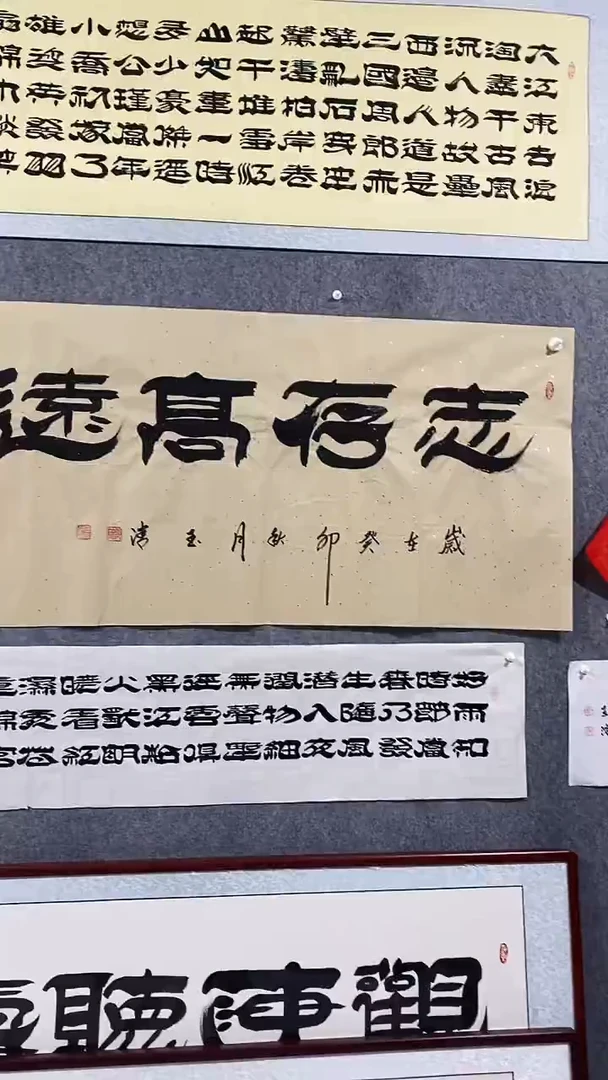 大江東去浪
淘盡千古風
流人物故壘
西邊人道是
三國周郎赤
壁亂石穿空
驚濤拍岸卷
起千堆雪江
山如畫一時
多少豪傑遥
想公瑾當年
小喬初嫁了
雄姿英發羽
志存高遠
歲在癸卯秋月玉清
好雨知
時節當
春乃發
生隨風
潜入夜
潤物細
無聲野
逕雲俱
黑江船
火獨明
曉看紅
濕處花
觀海聽